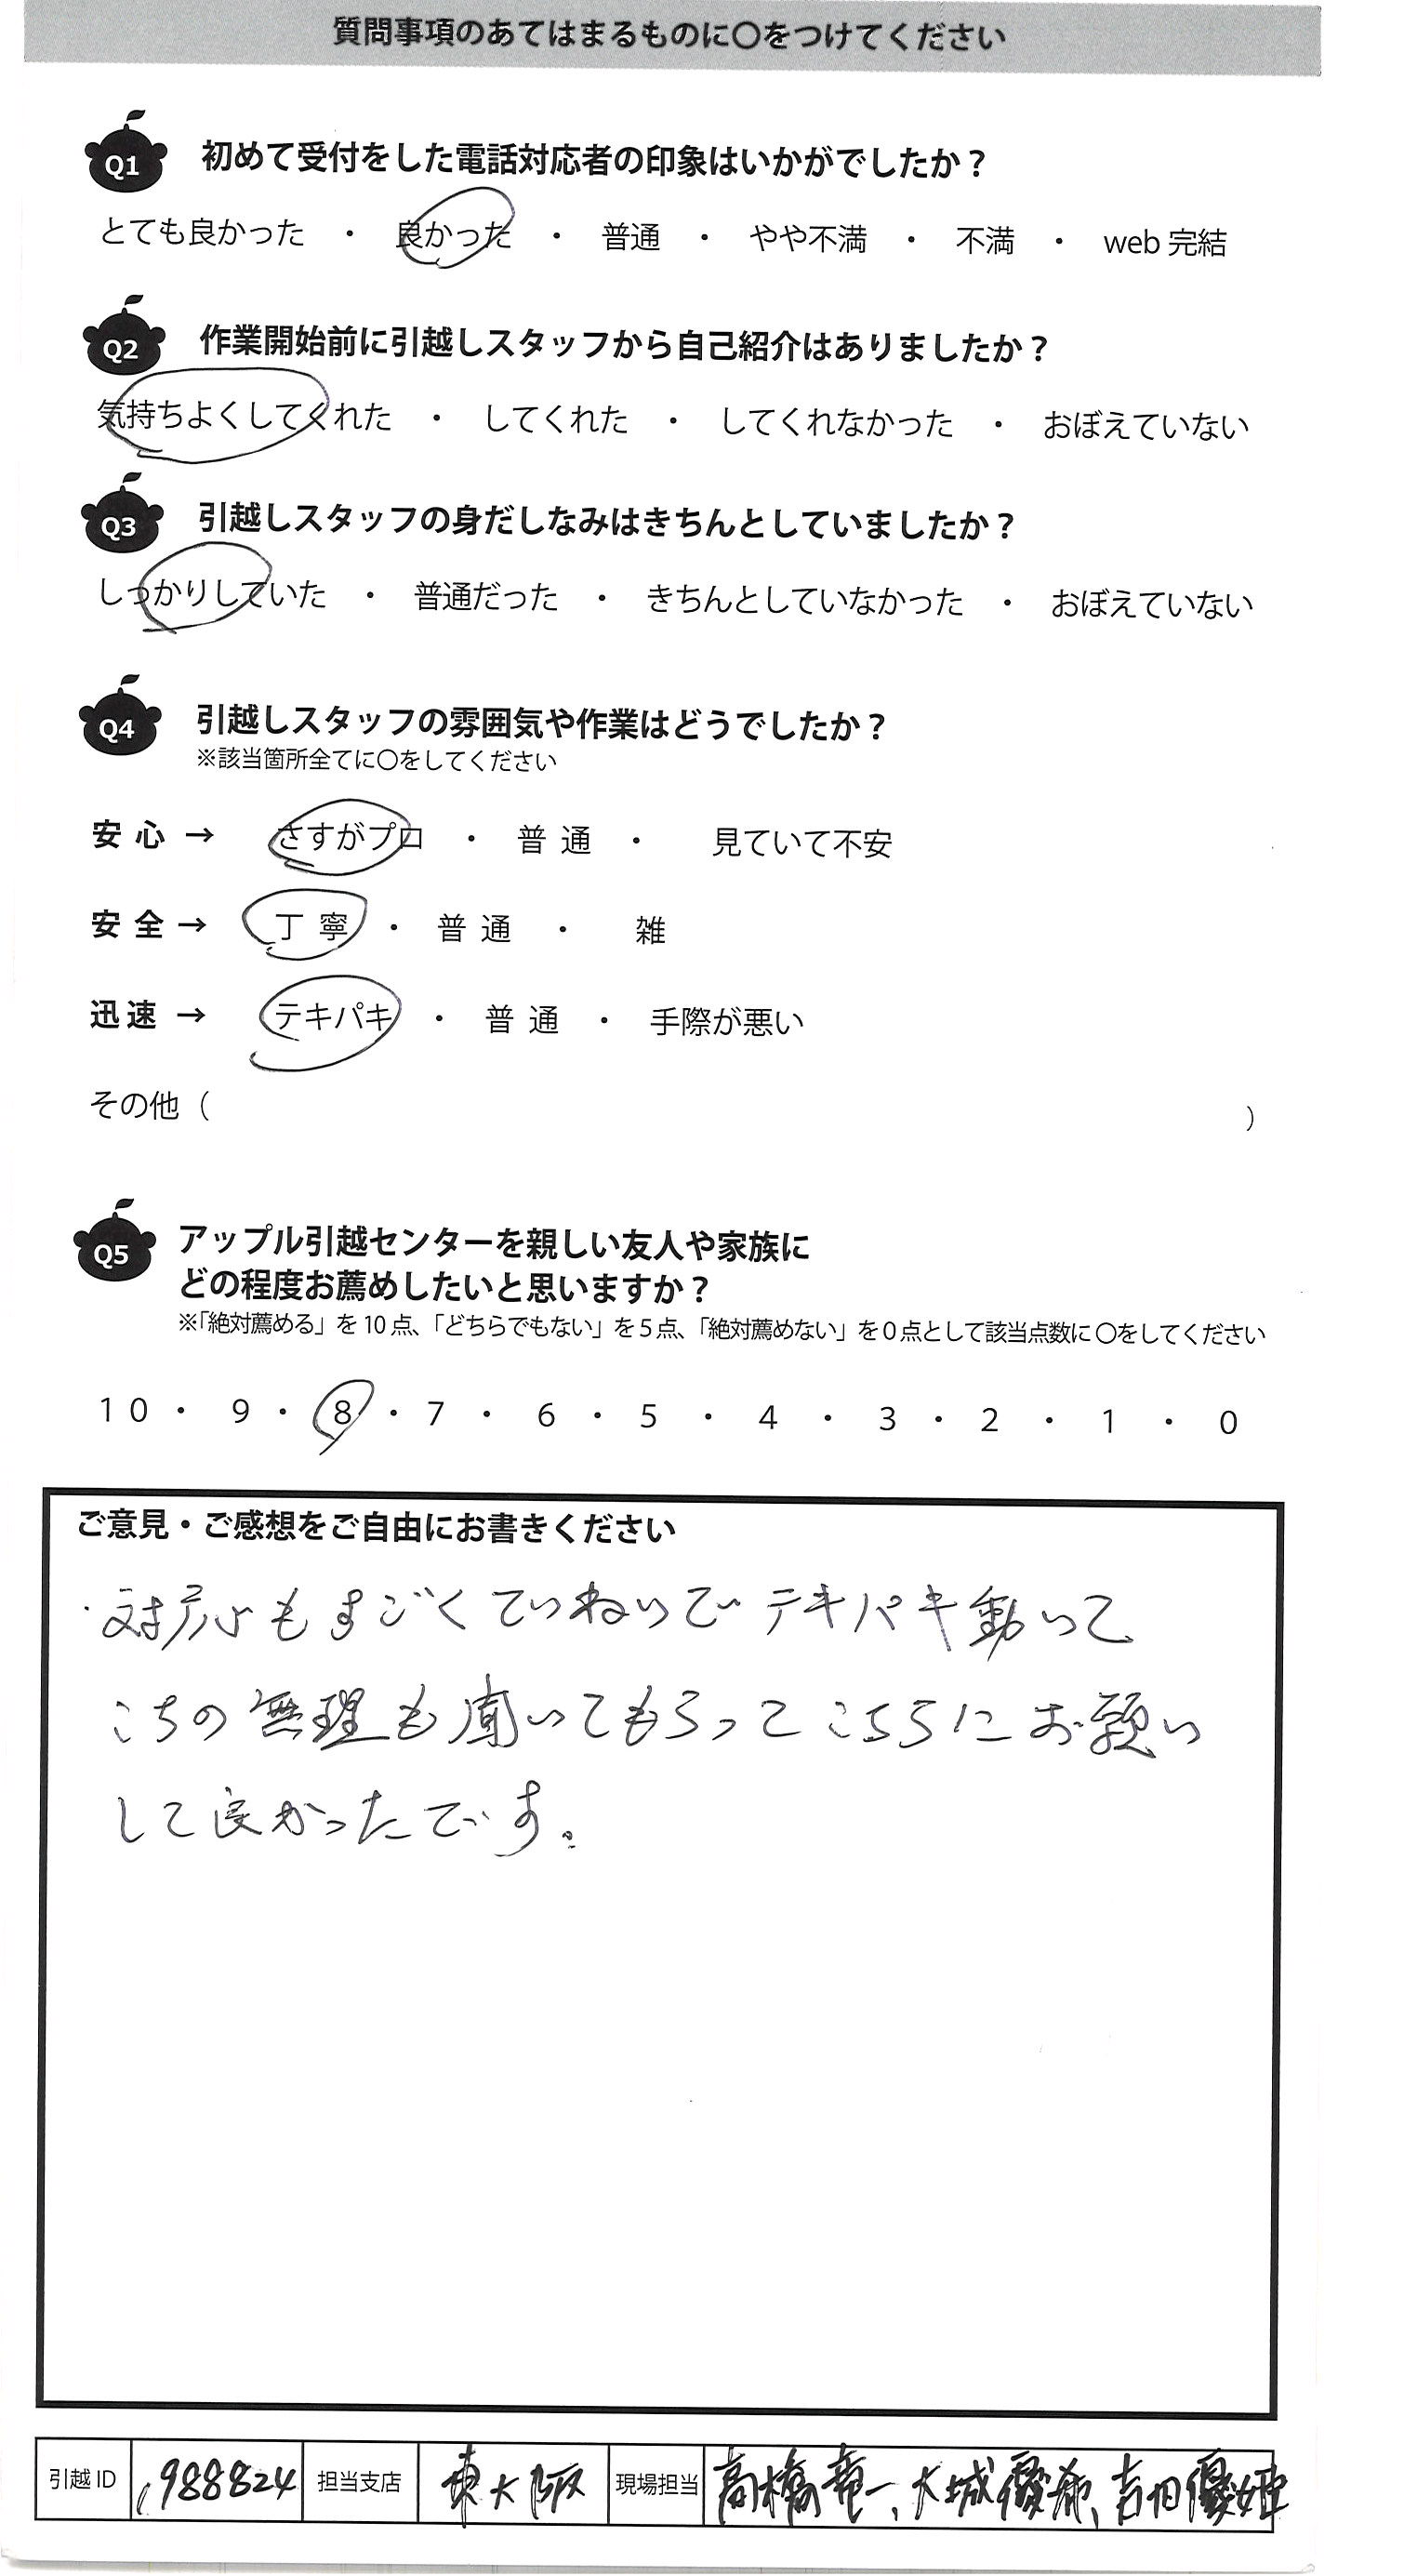 質問事項のあてはまるものに〇をつけてください
Q1 初めて受付をした電話対応者の印象はいかがでしたか？
とても良かった ・ 良かった ・ 普通 ・ やや不満 ・ 不満 ・ web 完結
Q2 作業開始前に引越しスタッフから自己紹介はありましたか？
気持ちよくしてくれた ・ してくれた ・ してくれなかった ・ おぼえていない
Q3 引越しスタッフの身だしなみはきちんとしていましたか？
しっかりしていた ・ 普通だった ・ きちんとしていなかった ・ おぼえていない
Q4 引越しスタッフの雰囲気や作業はどうでしたか？
※該当箇所全てに〇をしてください
安心 → さすがプロ ・ 普通 ・ 見ていて不安
安全 → 丁寧 ・ 普通 ・ 雑
迅速 → テキパキ ・ 普通 ・ 手際が悪い
その他（ ）
Q5 アップル引越センターを親しい友人や家族に
どの程度お薦めしたいと思いますか？
※「絶対薦める」を10点、「どちらでもない」を5点、「絶対薦めない」を0点として該当点数に〇をしてください
10 ・ 9 ・ 8 ・ 7 ・ 6 ・ 5 ・ 4 ・ 3 ・ 2 ・ 1 ・ 0
ご意見・ご感想をご自由にお書きください
・対応もすごくていねいで テキパキ動いて
こちの無理も聞いてもらって こちらにお願い
して良かったです。
引越ID 1988824 担当支店 東大阪 現場担当 高橋竜一、大城優希、吉田優姫